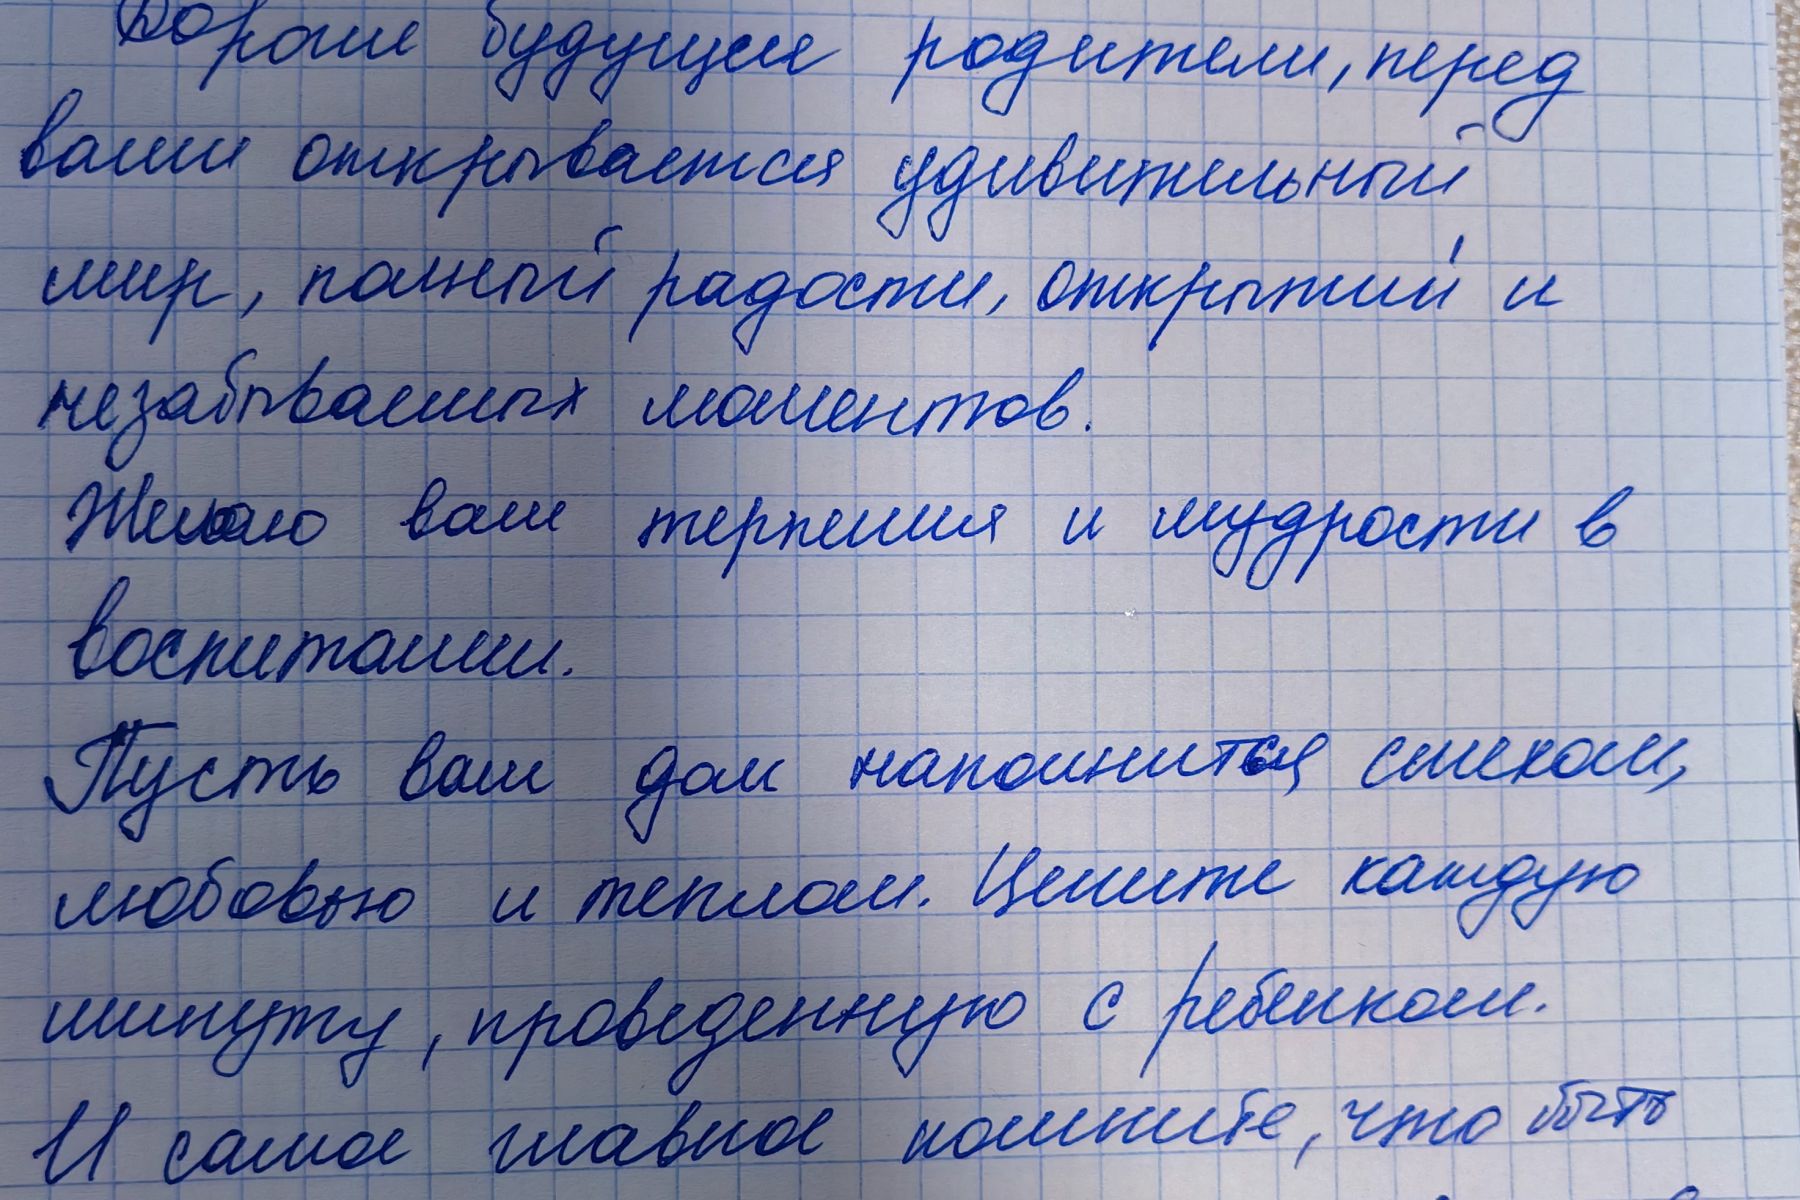 Дорогие будущие родители, перед
вами открывается удивительный
мир, полный радости, открытий и
незабываемых моментов.
Желаю вам терпения и мудрости в
воспитании.
Пусть ваш дом наполнится смехом,
любовью и теплом. Цените каждую
минуту, проведенную с ребенком.
И самое главное помните, что быть